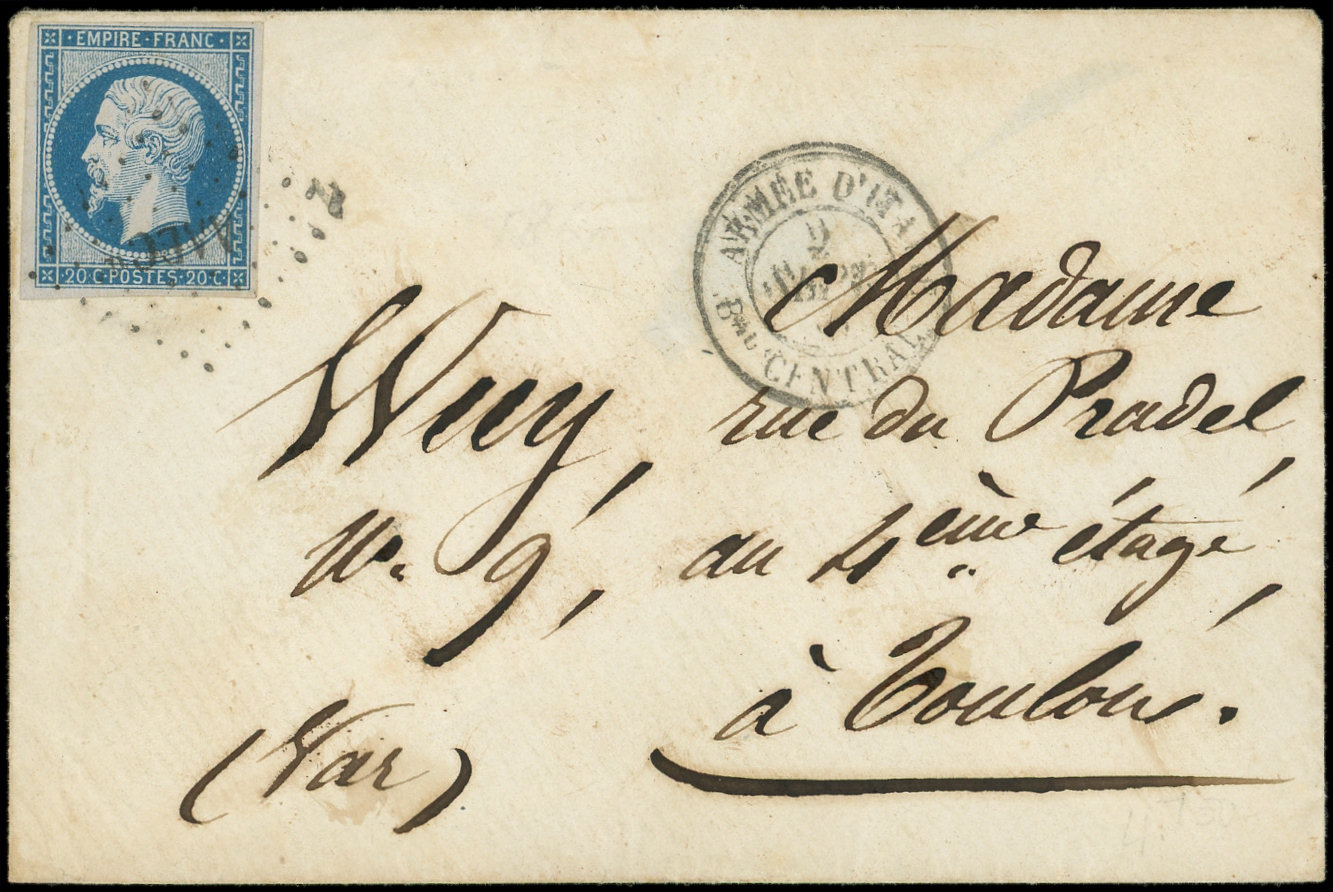 EMPIRE FRANC
20 C POSTES 20 C
ARMÉE D'ITA
9
Bau CENTRAL
Madame
Wuy, rue du Pradel,
No. 9, au 4ème étage,
à Toulon.
(Var)